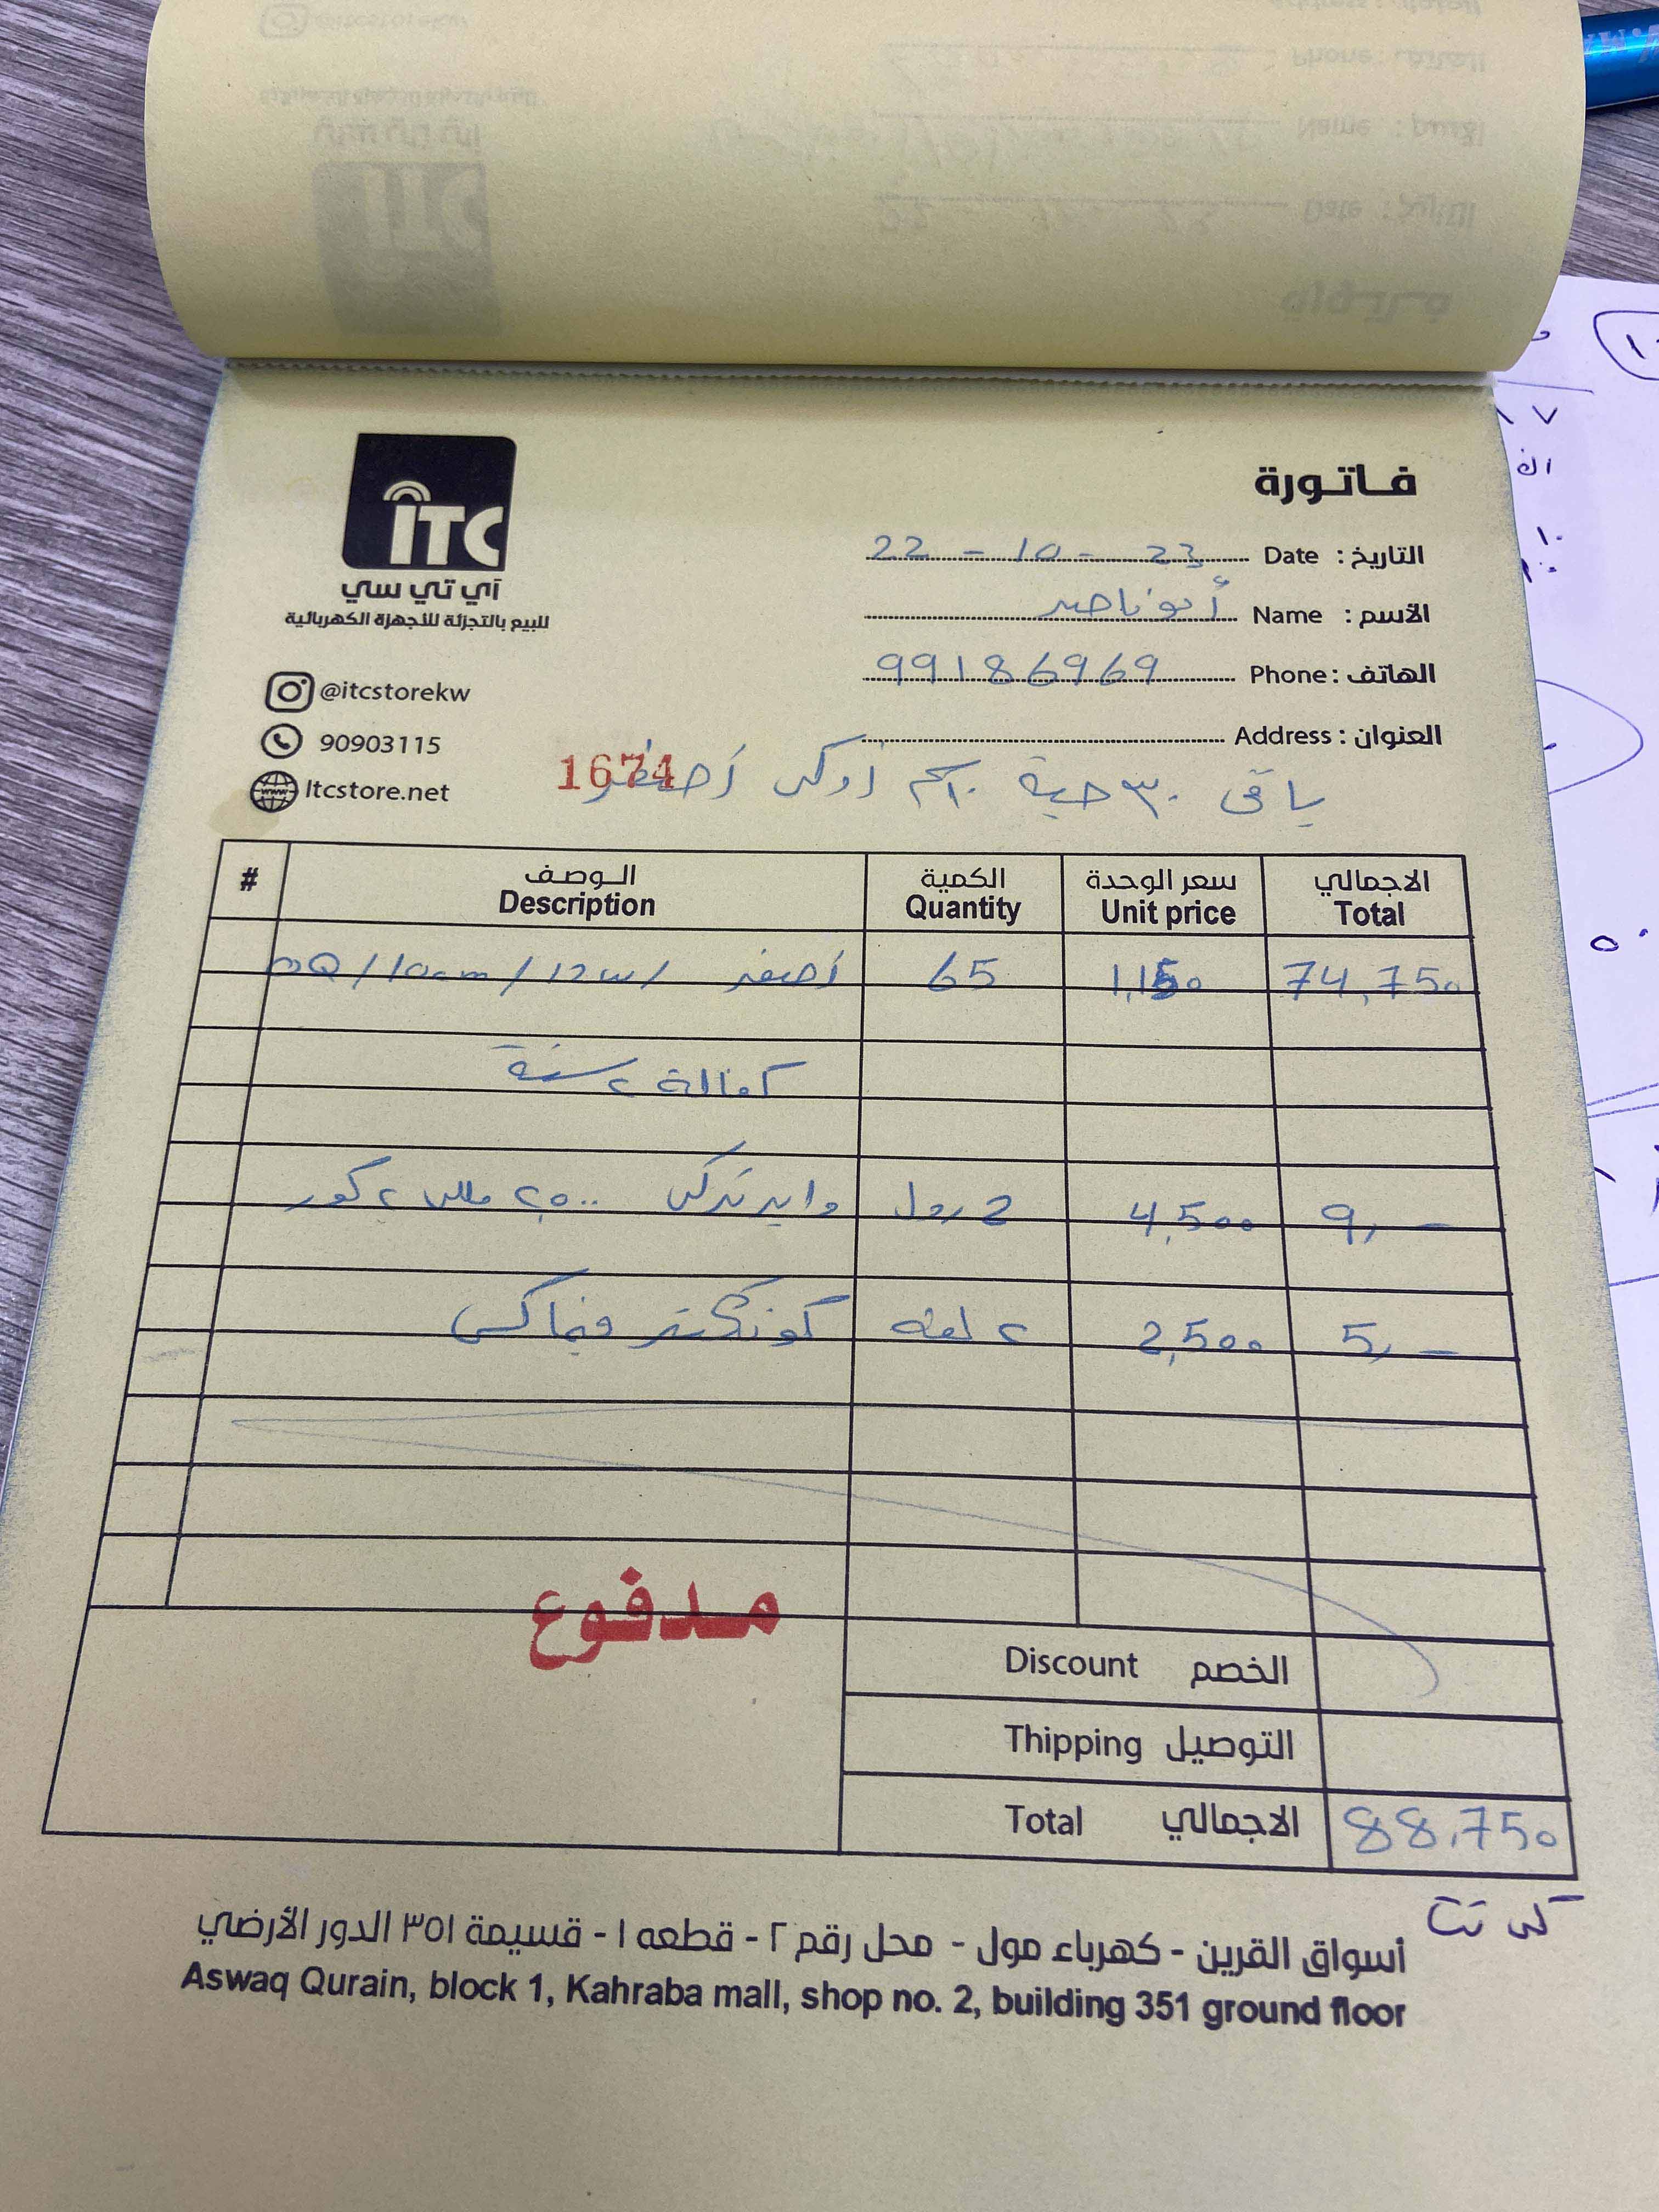 ITC
آي تي سي
للبيع بالتجزئة للأجهزة الكهربائية
@itcstorekw
90903115
Itcstore.net
فاتورة
التاريخ : Date 22 - 10 - 23
الأسم : Name أبو ناصر
الهاتف : Phone 99186969
العنوان : Address
1674
باقي ٣٠ حبة ١٠سم أوكي أصفر
# الوصف الكمية سعر الوحدة الاجمالي
Description Quantity Unit price Total
/10cm/12w/ أصفر 65 1,150 74,750
كفالة ٢ سنة
واير تركي ٢,٥٠٠ مللي ٢ كور 2 رول 4,500 9,-
كونكتر فيماكس ٢ لفة 2,500 5,-
مدفوع
Discount الخصم
Thipping التوصيل
Total الاجمالي 88,750
كي نت
أسواق القرين - كهرباء مول - محل رقم ٢ - قطعه ١ - قسيمة ٣٥١ الدور الأرضي
Aswaq Qurain, block 1, Kahraba mall, shop no. 2, building 351 ground floor